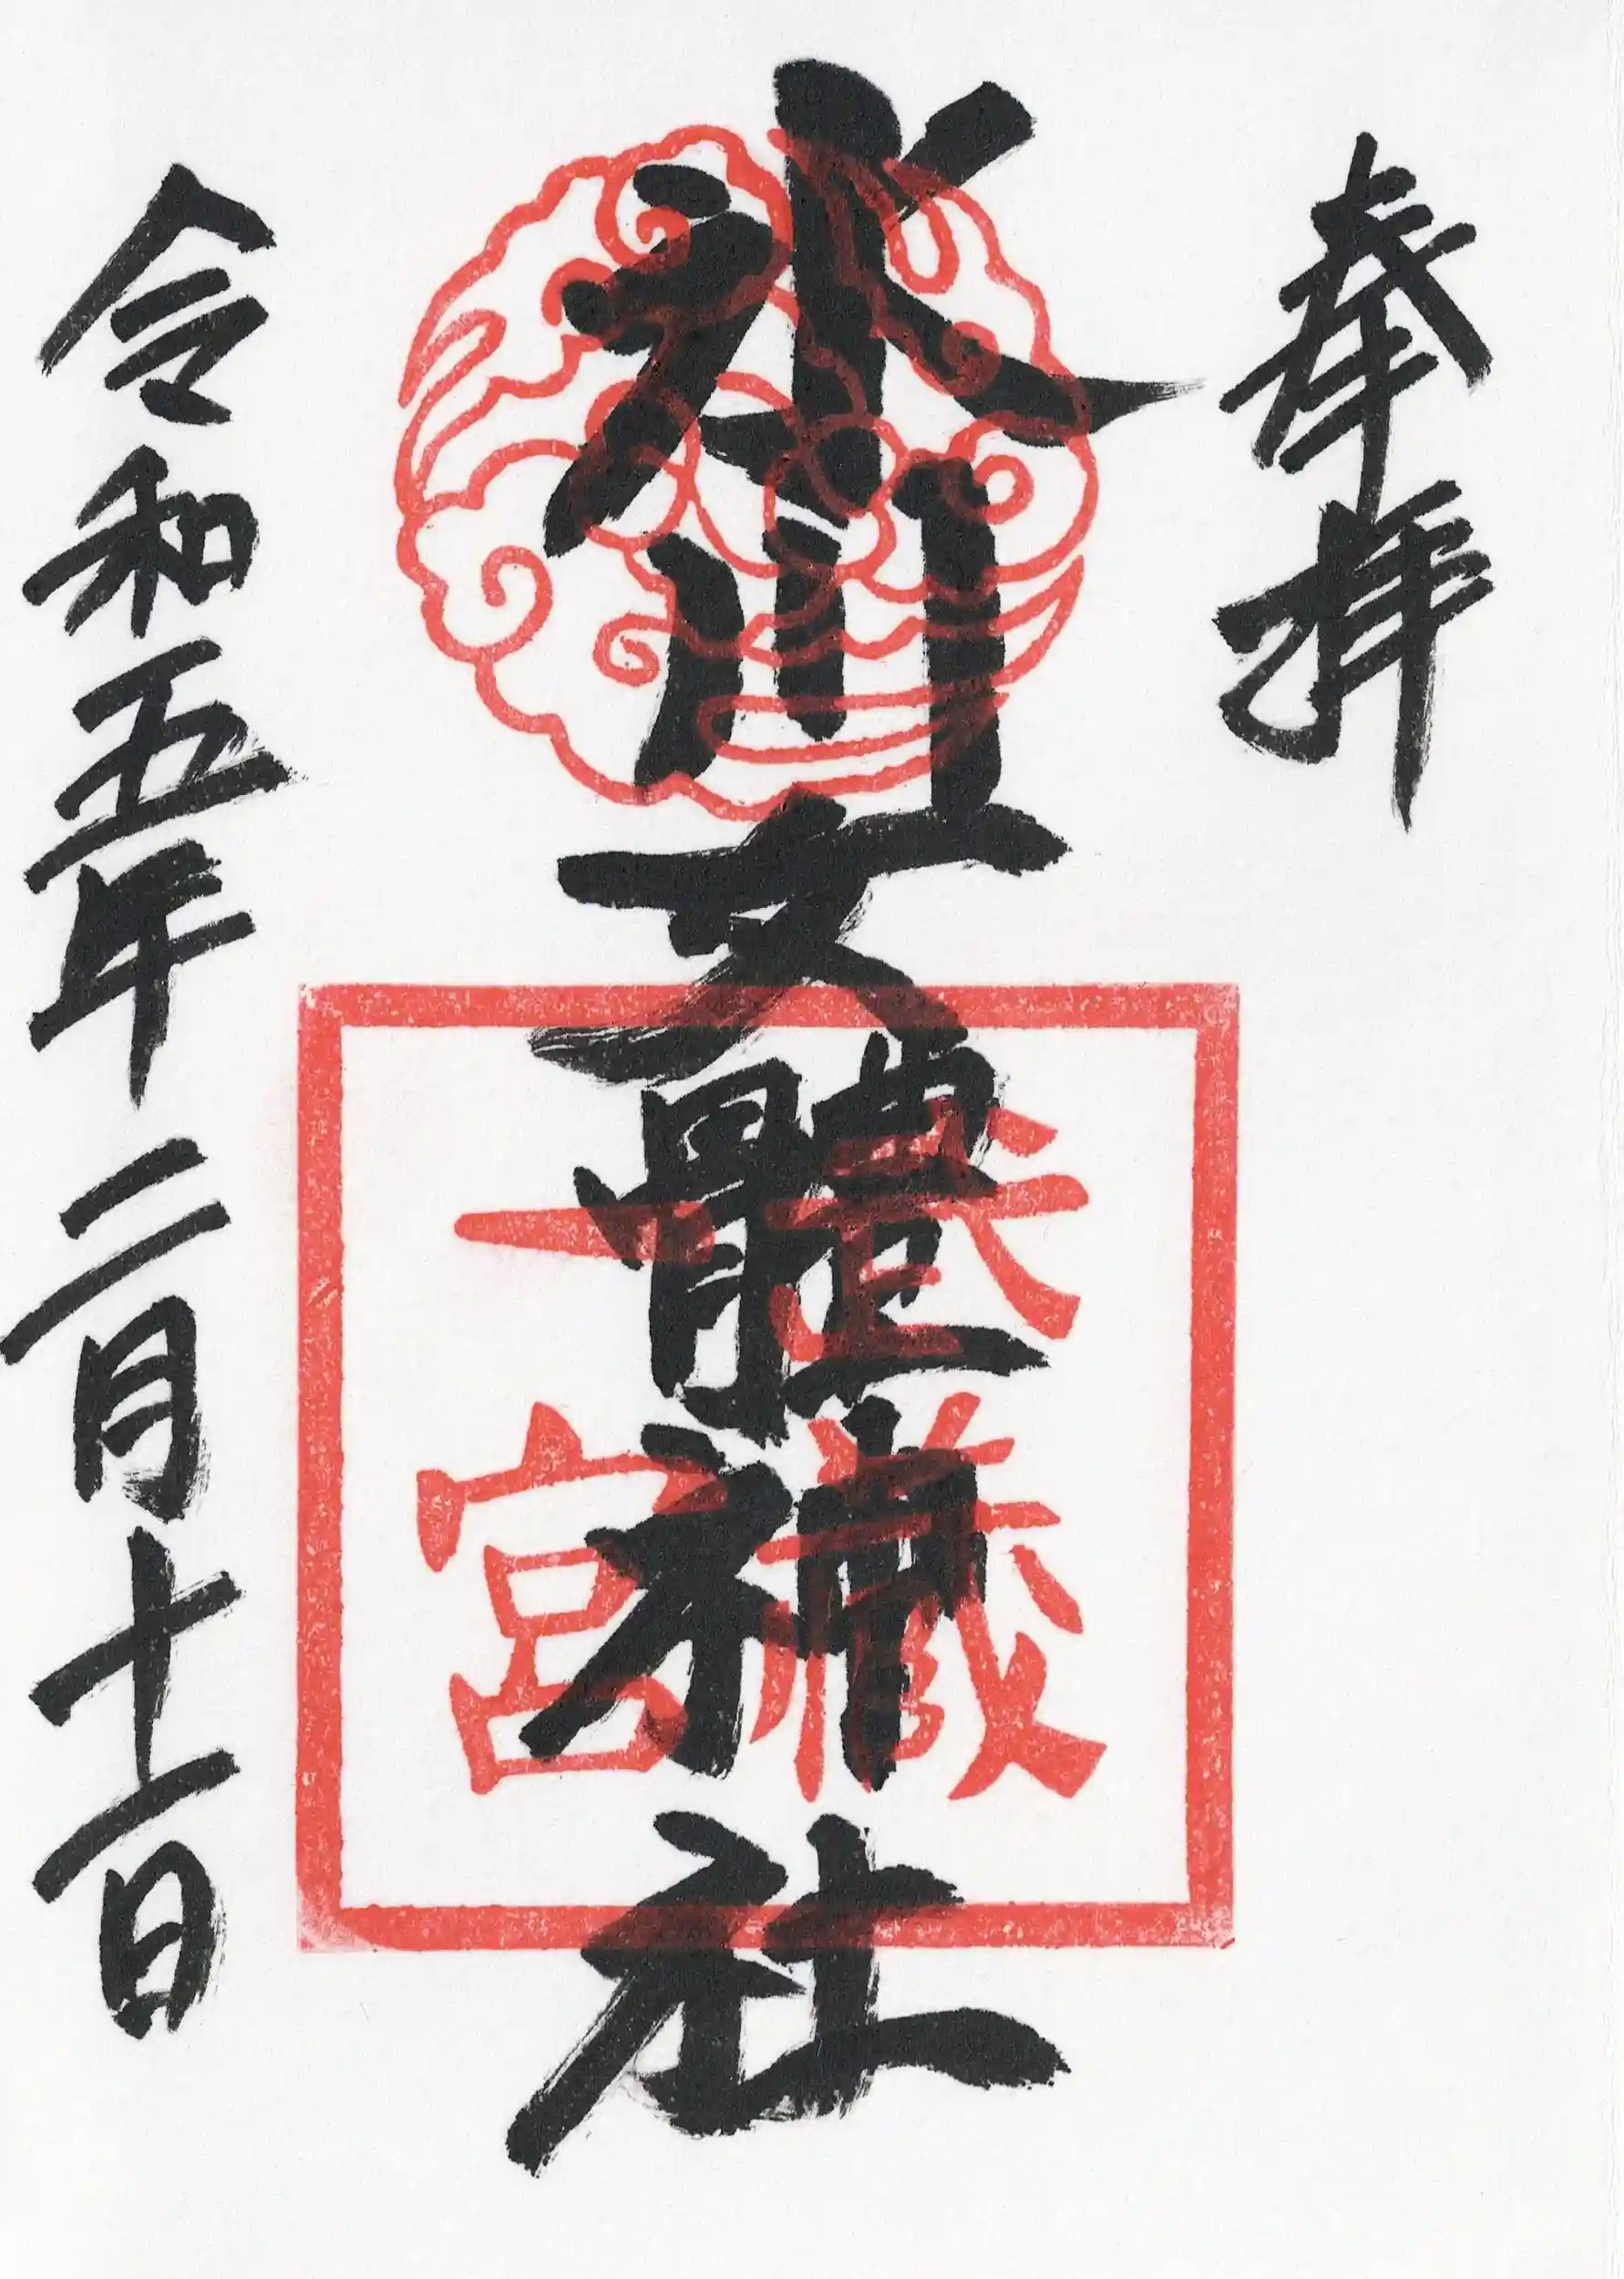 奉拝
氷川女體神社
武藏
一宮
令和五年二月十一日